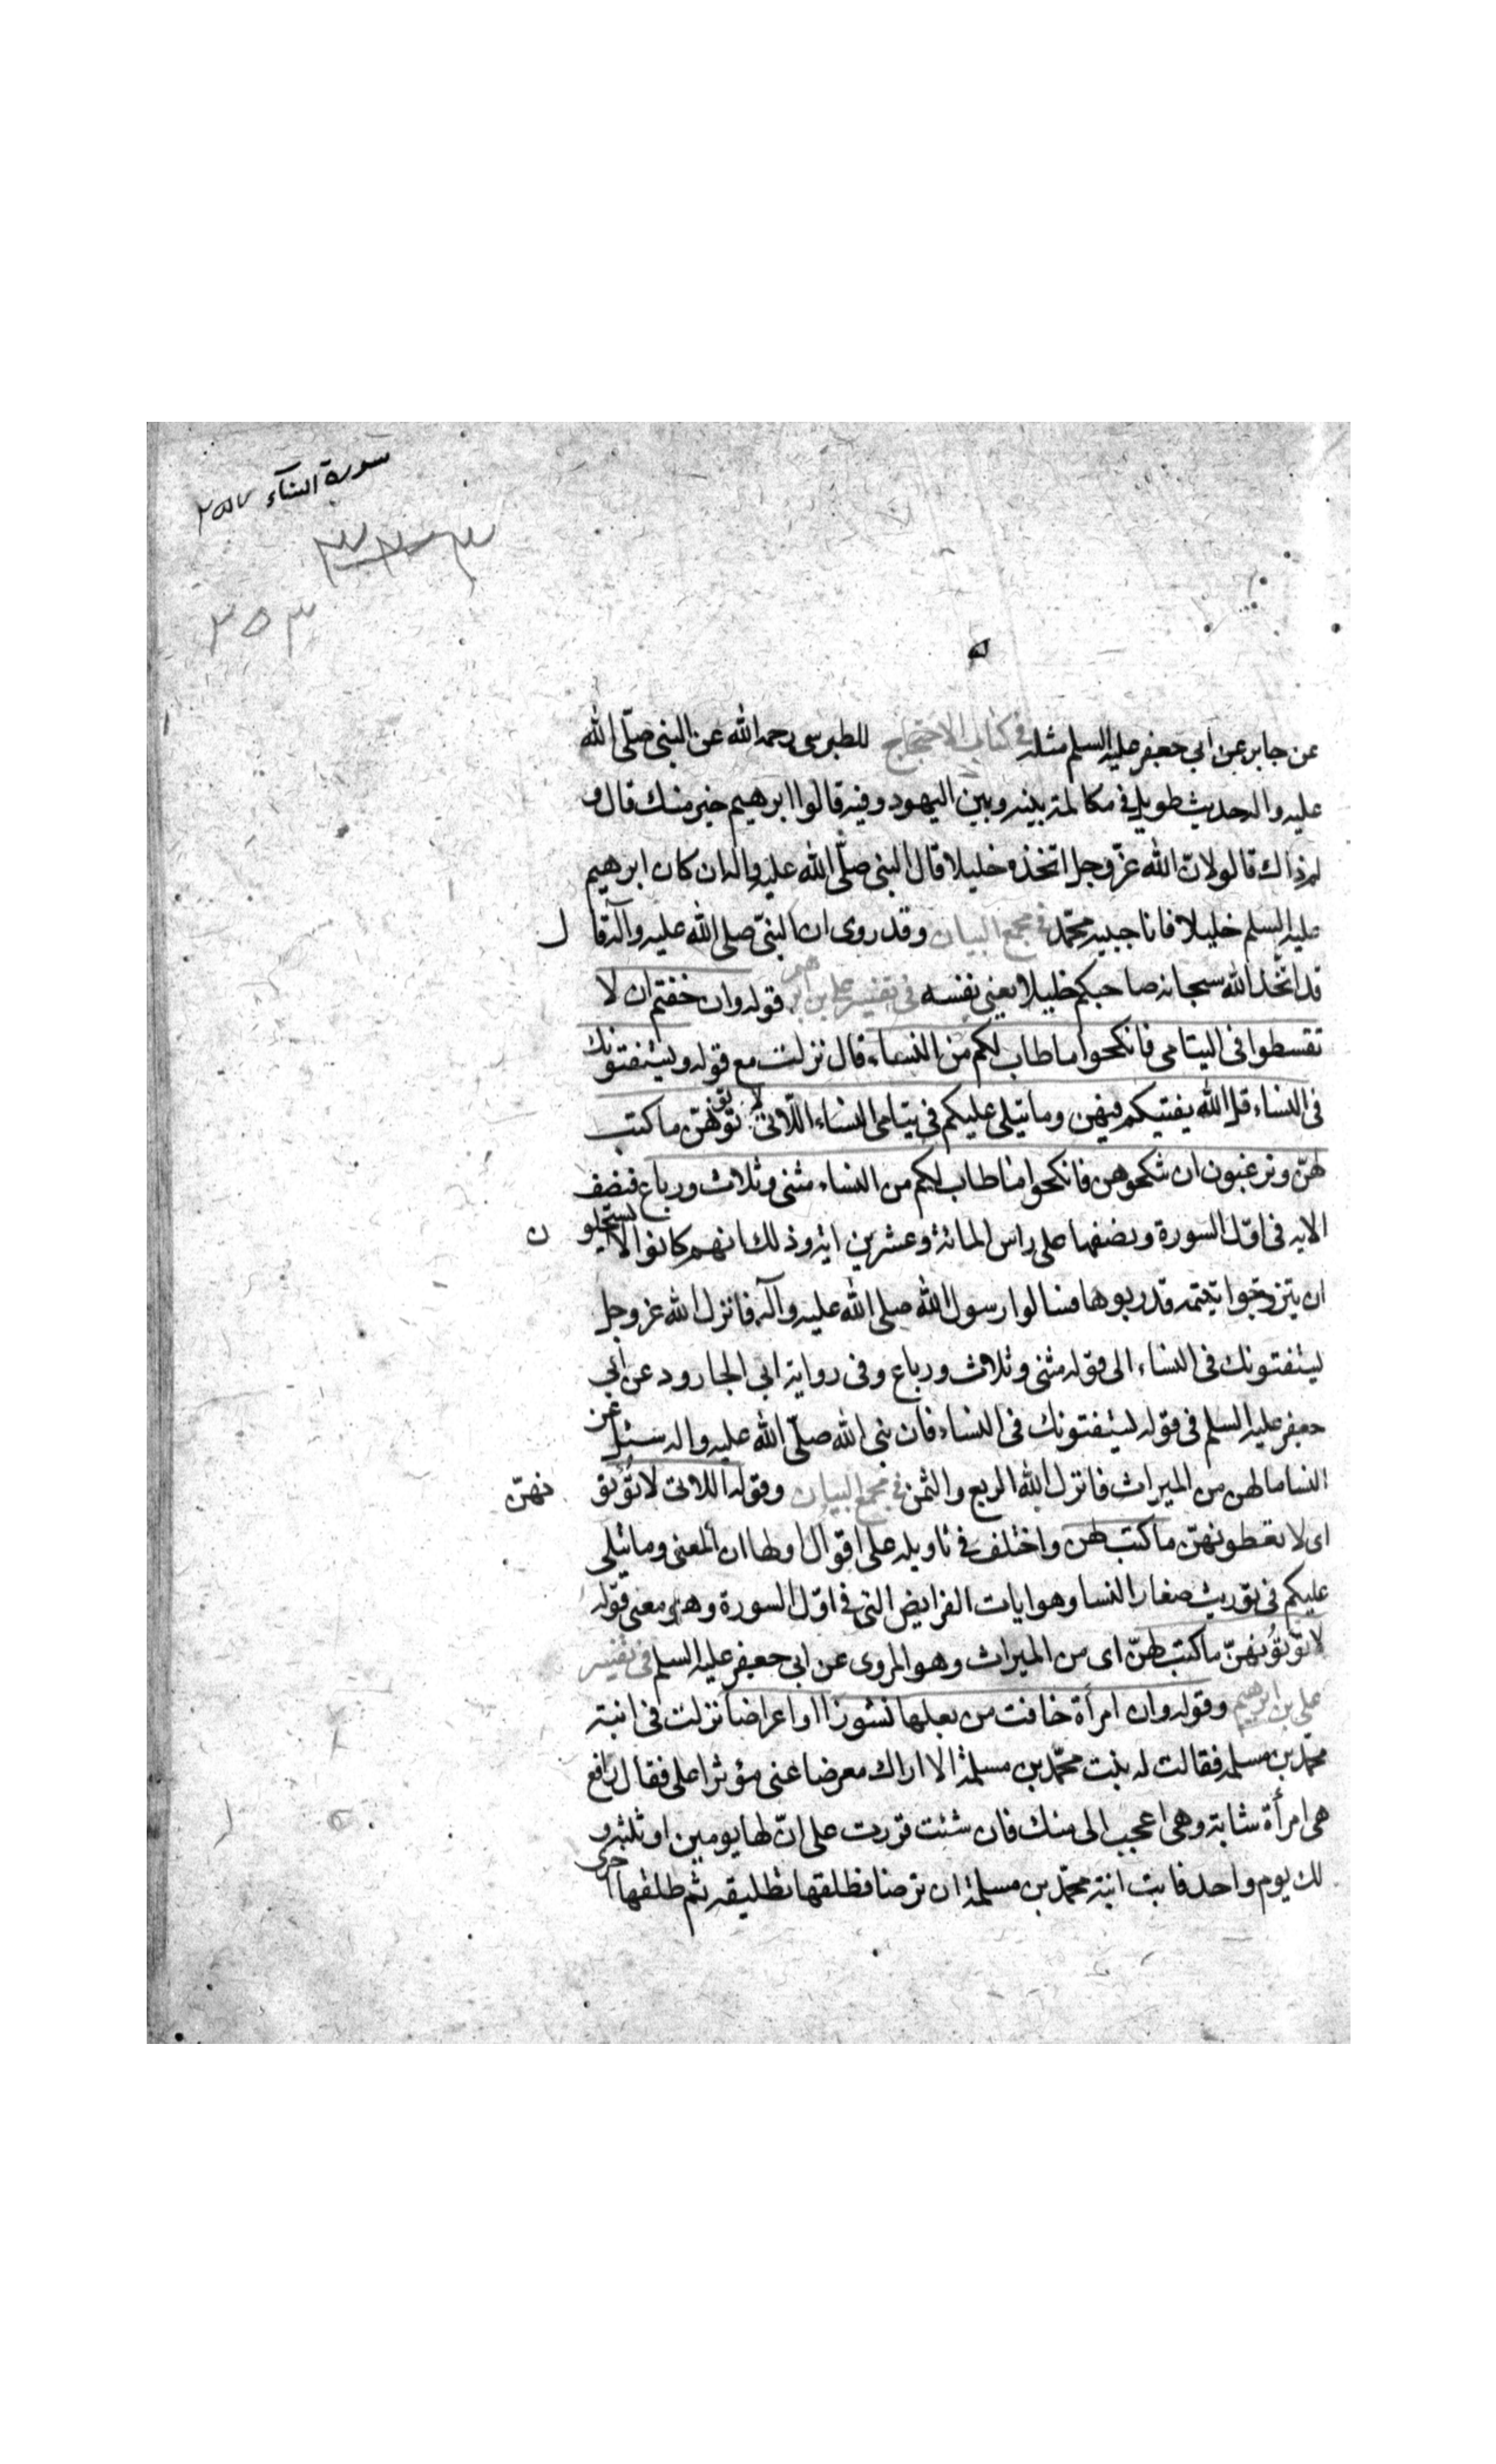 سورة النساء ٢٥٧
٣٢٣
٢٥٣
عن جابر عن ابي جعفر عليه السلم مثله في كتاب الاحتجاج للطبرسي رحمه الله عن النبي صلّى الله
عليه واله حديث طويل في مكالمة بينه وبين اليهود وفيه قالوا ابرهيم خير منك قال و
لم ذاك قالوا لان الله عزّ وجل اتخذه خليلا قال النبي صلّى الله عليه واله ان كان ابرهيم
عليه السلم خليلا فانا حبيبه محمّد في مجمع البيان وقد روى ان النبيّ صلى الله عليه وآله قال
قد اتّخذ الله سبحانه صاحبكم خليلا يعني نفسه في تفسير علي بن ابرهيم قوله وان خفتم ان لا
تقسطوا في اليتامى فانكحوا ما طاب لكم من النساء قال نزلت مع قوله ويستفتونك
في النساء قل الله يفتيكم فيهن وما يتلى عليكم في يتامى النساء اللّاتي لا تؤتونهنّ ما كتب
لهنّ وترغبون ان تنكحوهن فانكحوا ما طاب لكم من النساء مثنى وثلاث ورباع فنصف
الايه في اوّل السورة ونصفها على راس المائة وعشرين اية وذلك انهم كانوا لا يستحلون
ان يتزوّجوا يتيمة قد ربوها فسالوا رسول الله صلى الله عليه وآله فانزل الله عز وجل
يستفتونك في النساء الى قوله مثنى وثلاث ورباع وفي رواية ابي الجارود عن ابي
جعفر عليه السلم في قوله يستفتونك في النساء فان نبي الله صلّى الله عليه واله سئل عن
النسا ما لهن من الميراث فانزل الله الربع والثمن في مجمع البيان وقوله اللاتي لا تؤتونهنّ
اي لا تعطونهنّ ما كتب لهن واختلف في تاويله على اقوال اولها ان المعنى وما يتلى
عليكم في توريث صغار النسا وهو ايات الفرايض التي في اوّل السورة وهو معنى قوله
لا تؤتونهنّ ما كتب لهنّ اي من الميراث وهو المروى عن ابي جعفر عليه السلم في تفسير
علي بن ابرهيم وقوله وان امرأة خافت من بعلها نشوزا او اعراضا نزلت في ابنة
محمّد بن مسلمة فقالت له بنت محمّد بن مسلمة الا اراك معرضا عني مؤثرا علي فقال رافع
هي امرأة شابة وهي اعجب الي منك فان شئت قررت على انّ لها يومين او ثلثة و
لك يوم واحد فابت ابنة محمّد بن مسلمة ان ترضا فطلقها تطليقه ثم طلقها اخرى